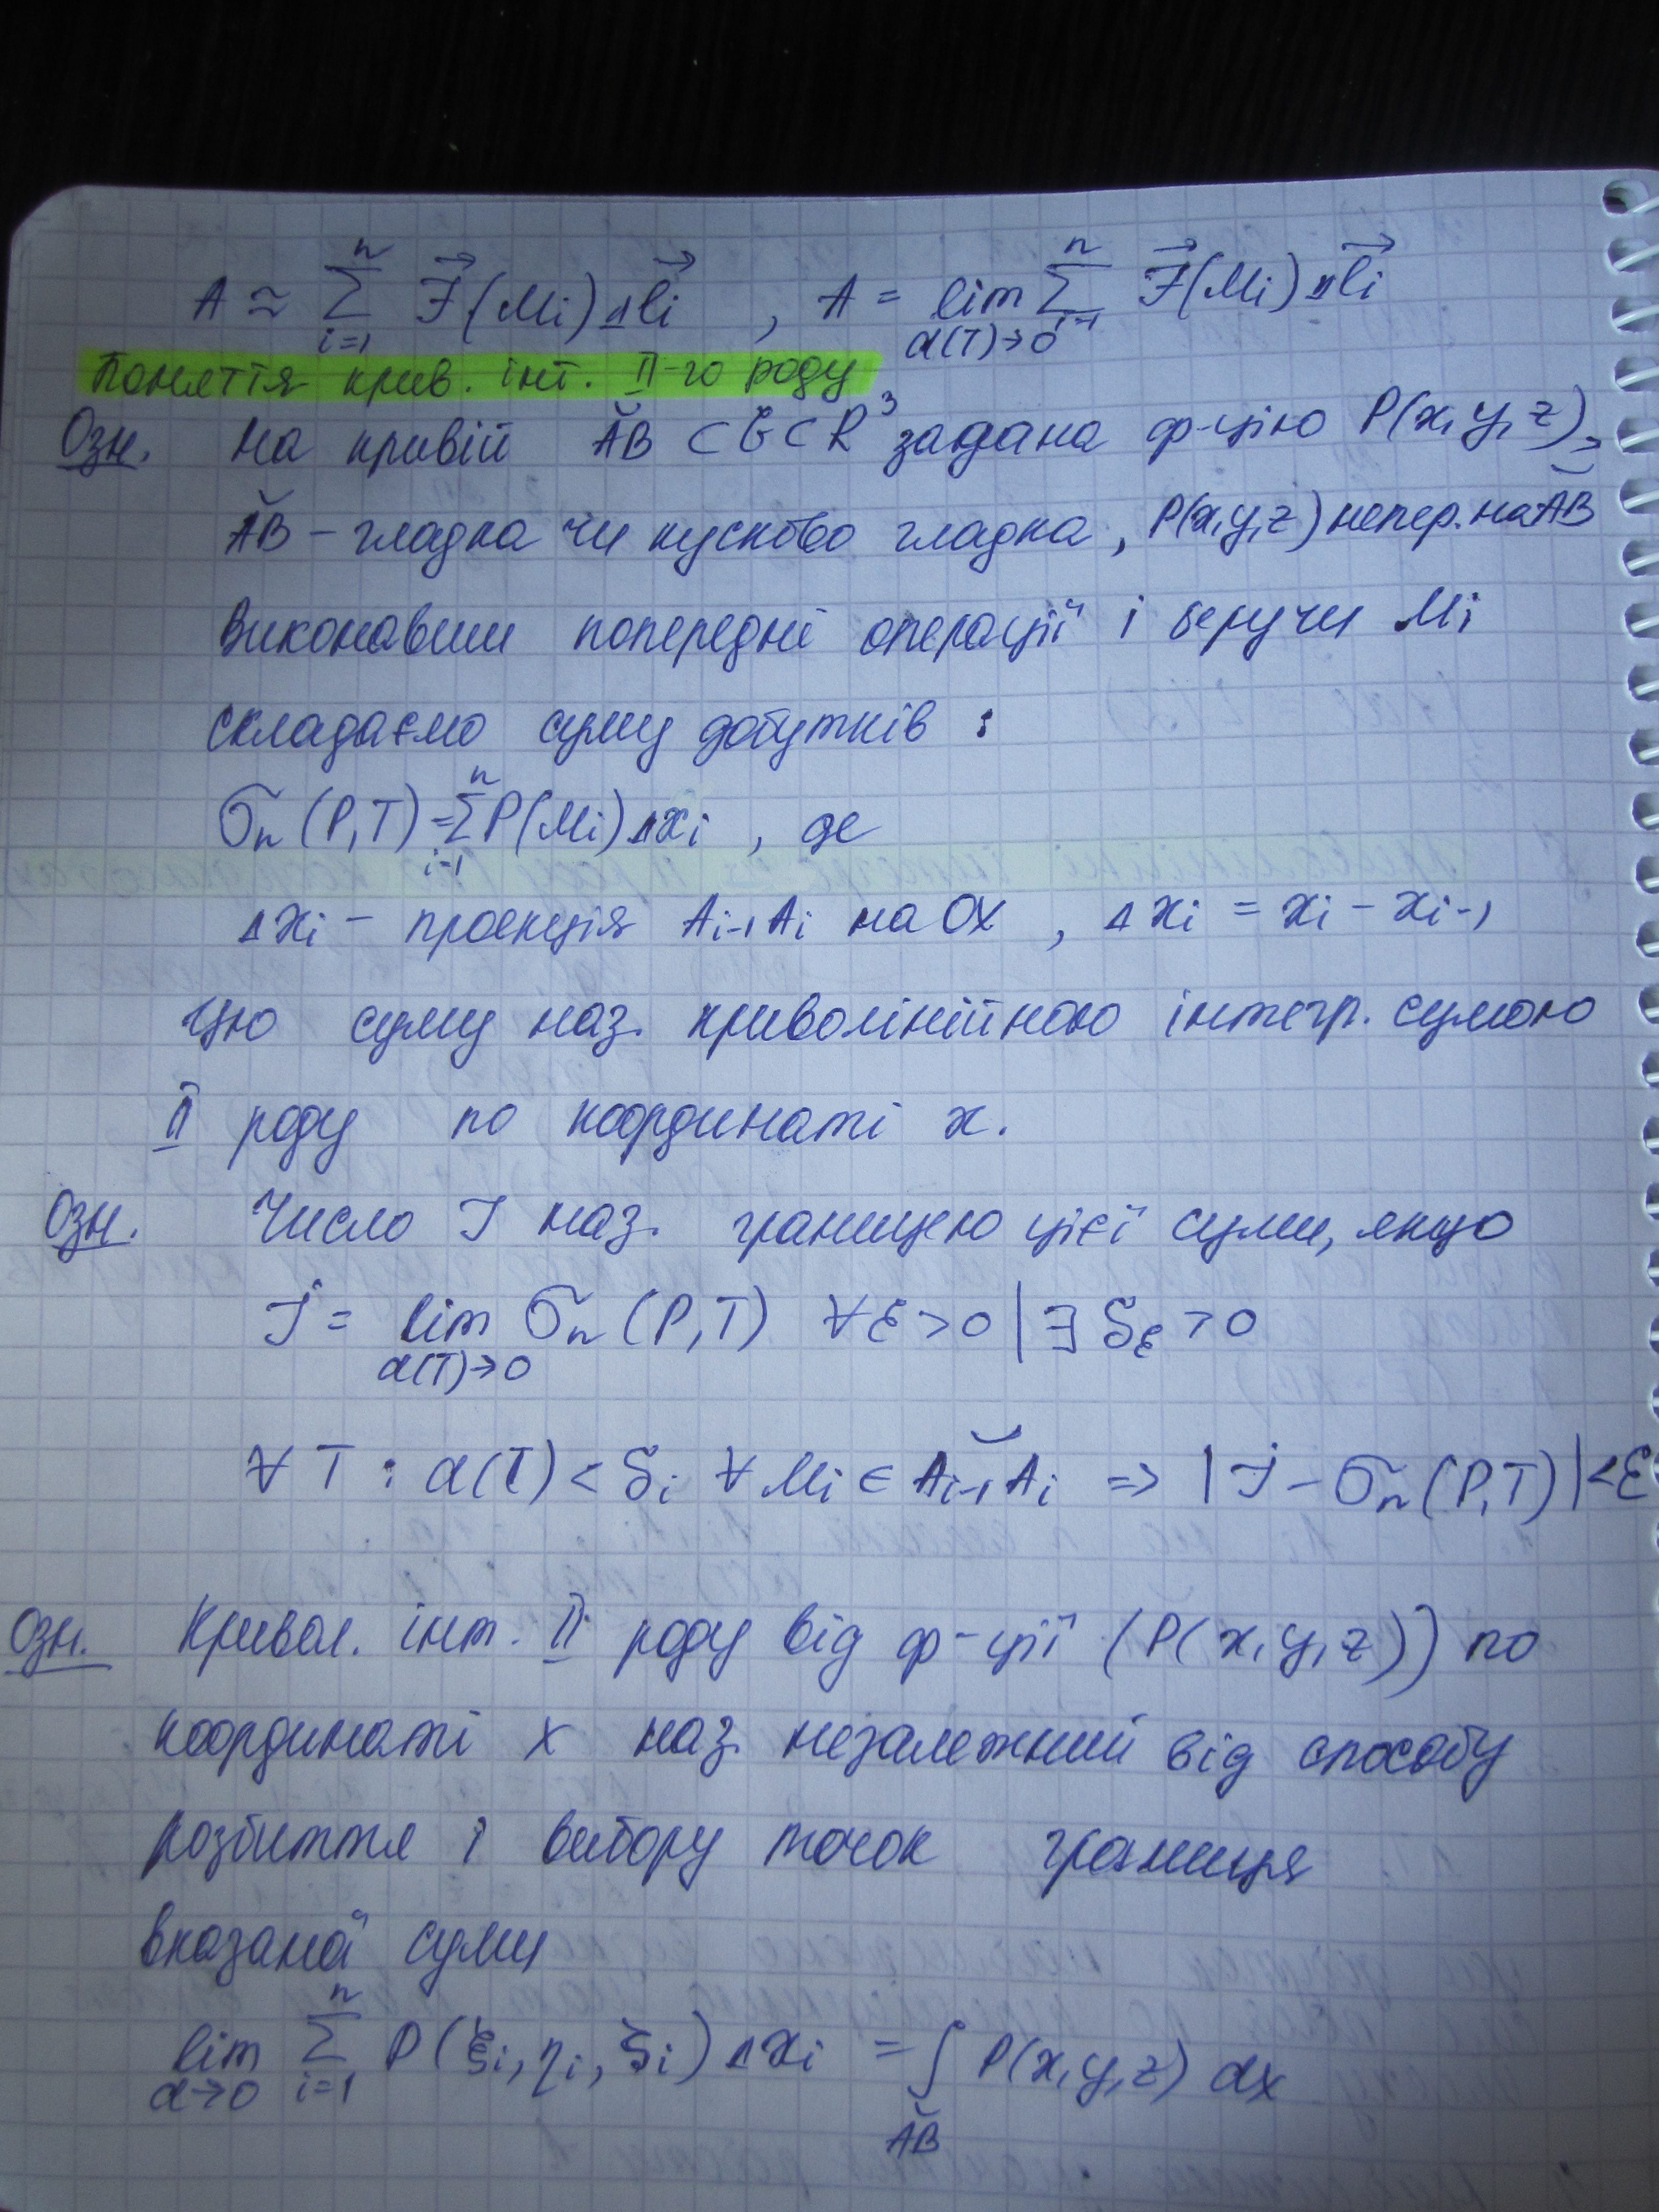 A ≈ Σ_{i=1}^{n} F⃗(Mi) Δl⃗i , A = lim_{d(T)→0} Σ_{i=1}^{n} F⃗(Mi) Δl⃗i
Поняття крив. інт. ІІ-го роду
Озн. На кривій A͝B ⊂ G ⊂ R³ задана ф-цію P(x,y,z),
A͝B – гладка чи кусково гладка, P(x,y,z) непер. на A͝B
Виконавши попередні операції і беручи Mi
складаємо суму добутків :
σn (P,T) = Σ_{i=1}^{n} P(Mi) Δxi , де
Δxi – проекція Ai-1 Ai на OX , Δxi = xi – xi-1
Цю суму наз. криволінійною інтегр. сумою
ІІ роду по координаті x.
Озн. Число J наз. границею цієї суми, якщо
J = lim_{d(T)→0} σn (P,T) ∀ε>0 | ∃ δε >0
∀ T : d(T) < δi ∀ Mi ∈ A͝i-1 Ai ⇒ |J – σn (P,T)| < ε
Озн. Кривол. інт. ІІ роду від ф-ції (P(x,y,z)) по
координаті x наз. незалежний від способу
розбиття і вибору точок границя
вказаної суми
lim_{d→0} Σ_{i=1}^{n} P(ξi, ηi, ζi) Δxi = ∫_{A͝B} P(x,y,z) dx